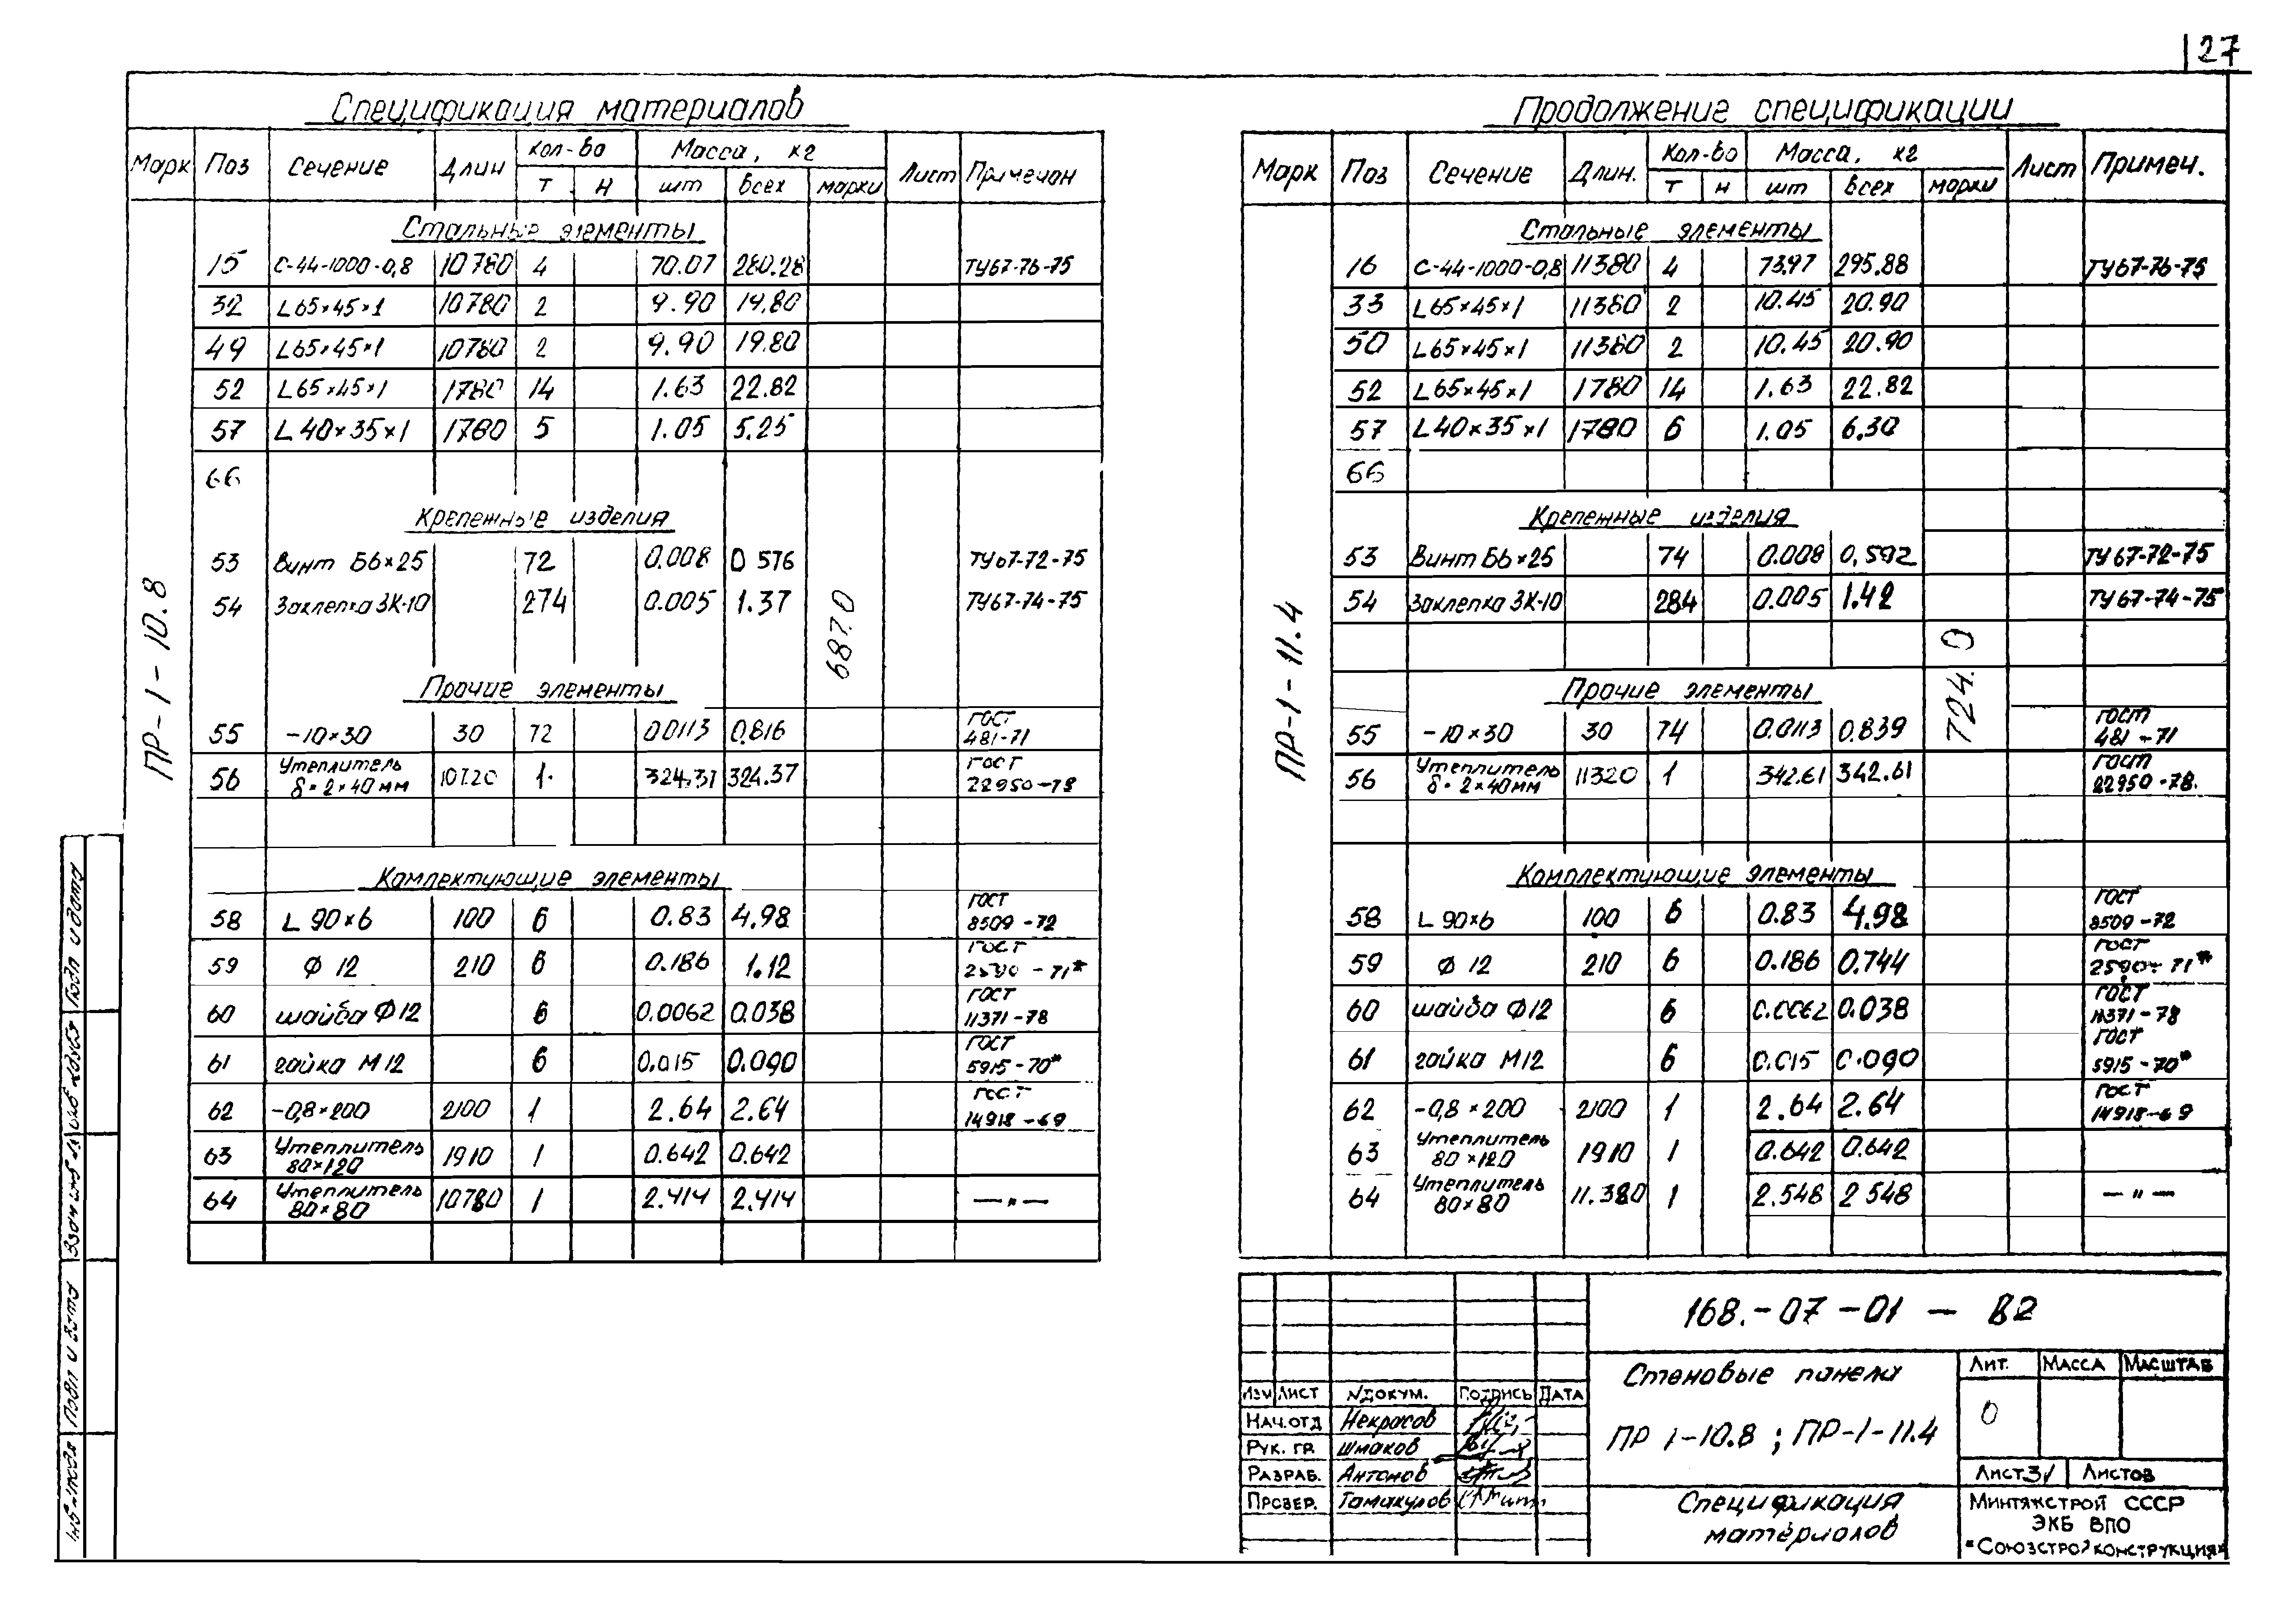 27
Спецификация материалов
Марк Поз Сечение Длин Кол-во Масса, кг Лист Примечан
т н шт всех марки
Стальные элементы
15 С-44-1000-0,8 10780 4 70.07 280.28 ТУ67-76-75
32 L65×45×1 10780 2 9.90 19.80
49 L65×45×1 10780 2 9.90 19.80
52 L65×45×1 1780 14 1.63 22.82
57 L40×35×1 1780 5 1.05 5.25
66
Крепежные изделия
53 Винт Б6×25 72 0.008 0 576 ТУ67-72-75
54 Заклепка ЗК-10 274 0.005 1.37 ТУ67-74-75
ПР-1-10.8
687.0
Прочие элементы
55 -10×30 30 72 0.0113 0.816 ГОСТ 481-71
56 Утеплитель δ=2×40мм 10720 1 324.37 324.37 ГОСТ 22950-78
Комлектующие элементы
58 L 90×6 100 6 0.83 4.98 ГОСТ 8509-72
59 Ф 12 210 6 0.186 1.12 ГОСТ 2590-71*
60 шайба Ф12 6 0.0062 0.038 ГОСТ 11371-78
61 гайка М12 6 0.015 0.090 ГОСТ 5915-70*
62 -0,8×200 2100 1 2.64 2.64 ГОСТ 14918-69
63 Утеплитель 80×120 1910 1 0.642 0.642
64 Утеплитель 80×80 10780 1 2.414 2.414 —"—
Продолжение спецификации
Марк Поз Сечение Длин. Кол-во Масса, кг Лист Примеч.
т н шт всех марки
Стальные элементы
16 С-44-1000-0,8 11380 4 73.97 295.88 ТУ67-76-75
33 L65×45×1 11380 2 10.45 20.90
50 L65×45×1 11380 2 10.45 20.90
52 L65×45×1 1780 14 1.63 22.82
57 L40×35×1 1780 6 1.05 6.30
66
Крепежные изделия
53 Винт Б6×25 74 0.008 0,592 ТУ67-72-75
54 Заклепка ЗК-10 284 0.005 1.42 ТУ67-74-75
ПР-1-11.4
724.0
Прочие элементы
55 -10×30 30 74 0.0113 0.839 ГОСТ 481-71
56 Утеплитель δ=2×40мм 11320 1 342.61 342.61 ГОСТ 22950-78.
Комплектующие элементы
58 L 90×6 100 6 0.83 4.98 ГОСТ 8509-72
59 Ф 12 210 6 0.186 0.744 ГОСТ 2590-71*
60 шайба Ф12 6 0.0062 0.038 ГОСТ 11371-78
61 гайка М12 6 0.015 0.090 ГОСТ 5915-70*
62 -0,8×200 2100 1 2.64 2.64 ГОСТ 14918-69
63 Утеплитель 80×120 1910 1 0.642 0.642
64 Утеплитель 80×80 11.380 1 2.548 2 548 —"—
168.-07-01 - В2
Стеновые панели
ПР 1-10.8 ; ПР-1-11.4
Лит. Масса Масштаб
О
Лист 31 Листов
Изм Лист Nдокум. Подпись Дата
Нач.отд Некрасов
Рук. гр. Шмаков
Разраб. Антонов
Провер. Тамакулов
Спецификация
материалов
Минтяжстрой СССР
ЭКБ ВПО
"Союзстройконструкция"
Инв.№подл Подп и дату Взам инв № Инв №дубл Подп и дату